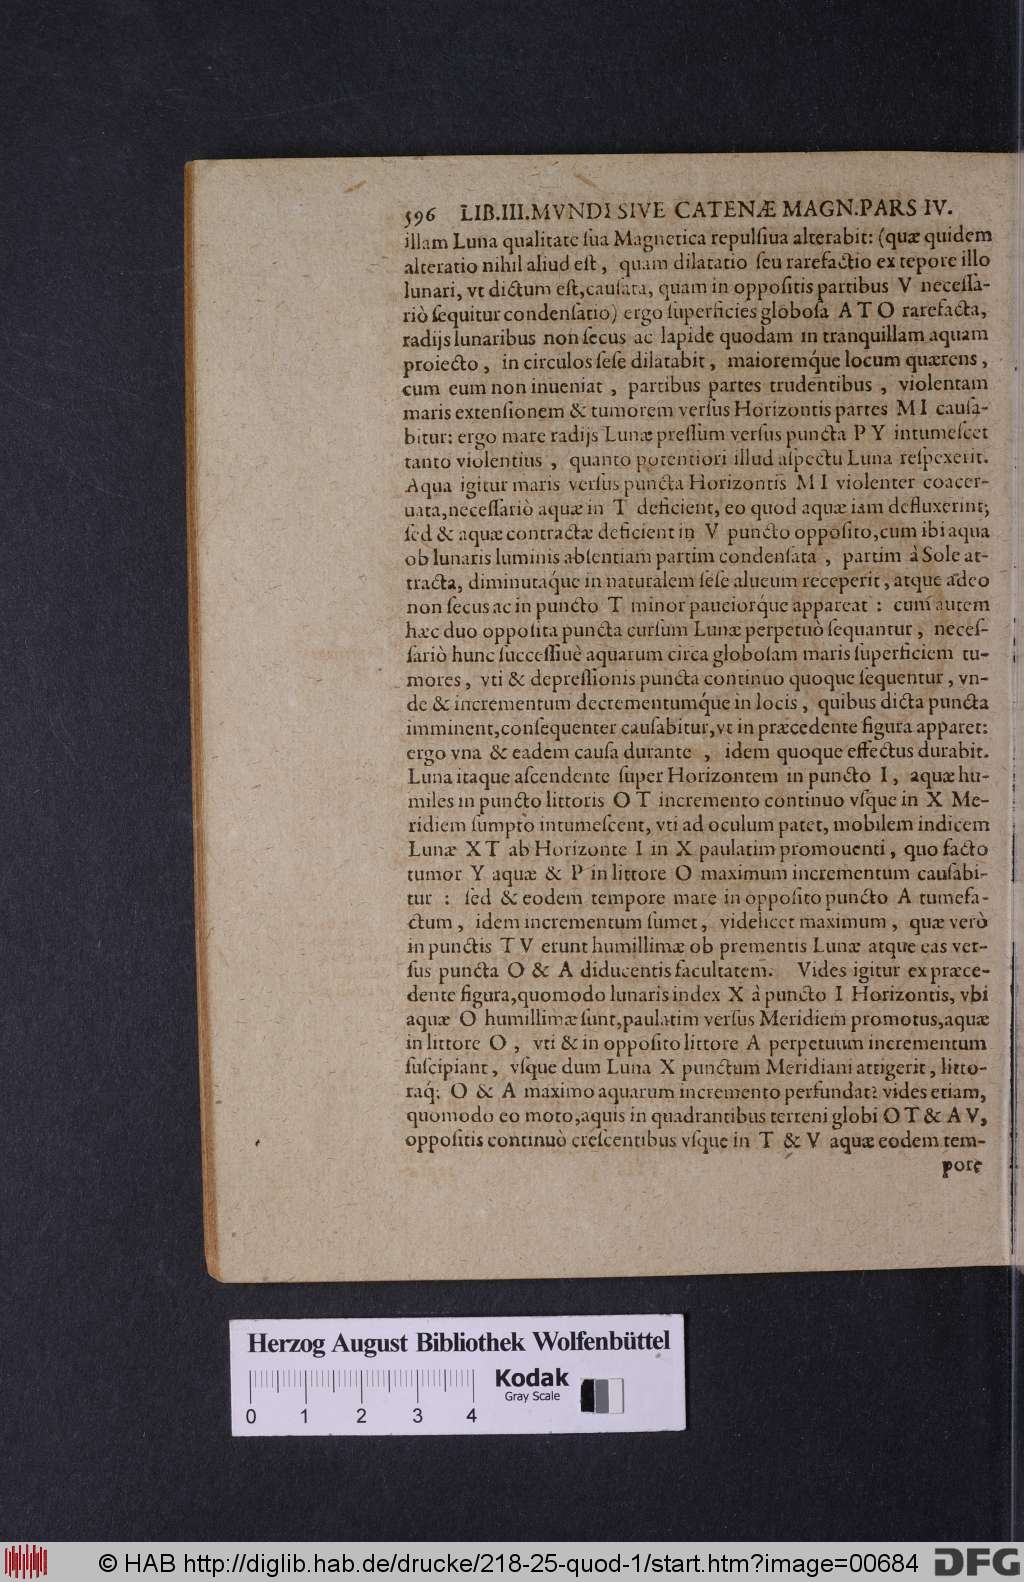 596 LIB.III.MVNDI SIVE CATENÆ MAGN.PARS IV.
illam Luna qualitate ſua Magnetica repulſiua alterabit: (quæ quidem
alteratio nihil aliud eſt, quam dilatatio ſeu rarefactio ex tepore illo
lunari, vt dictum eſt,cauſata, quam in oppoſitis partibus V neceſſa-
riò ſequitur condenſatio) ergo ſuperficies globoſa A T O rarefacta,
radijs lunaribus non ſecus ac lapide quodam in tranquillam aquam
proiecto, in circulos ſeſe dilatabit, maioremq́ue locum quærens,
cum eum non inueniat, partibus partes trudentibus, violentam
maris extenſionem & tumorem verſus Horizontis partes M I cauſa-
bitur: ergo mare radijs Lunæ preſſum verſus puncta P Y intumeſcet
tanto violentius, quanto potentiori illud aſpectu Luna reſpexerit.
Aqua igitur maris verſus puncta Horizontis M I violenter coacer-
uata,neceſſariò aquæ in T deficient, eo quod aquæ iam defluxerint;
ſed & aquæ contractæ deficient in V puncto oppoſito,cum ibi aqua
ob lunaris luminis abſentiam partim condenſata, partim à Sole at-
tracta, diminutaq́ue in naturalem ſeſe alueum receperit, atque adeo
non ſecus ac in puncto T minor pauciorq́ue appareat: cum autem
hæc duo oppoſita puncta curſum Lunæ perpetuò ſequantur, neceſ-
ſariò hunc ſucceſſiuè aquarum circa globoſam maris ſuperficiem tu-
mores, vti & depreſſionis puncta continuo quoque ſequentur, vn-
de & incrementum decrementumq́ue in locis, quibus dicta puncta
imminent,conſequenter cauſabitur,vt in præcedente figura apparet:
ergo vna & eadem cauſa durante, idem quoque effectus durabit.
Luna itaque aſcendente ſuper Horizontem in puncto I, aquæ hu-
miles in puncto littoris O T incremento continuo vſque in X Me-
ridiem ſumpto intumeſcent, vti ad oculum patet, mobilem indicem
Lunæ X T ab Horizonte I in X paulatim promouenti, quo facto
tumor Y aquæ & P in littore O maximum incrementum cauſabi-
tur : ſed & eodem tempore mare in oppoſito puncto A tumefa-
ctum, idem incrementum ſumet, videlicet maximum, quæ verò
in punctis T V erunt humillimæ ob prementis Lunæ atque eas ver-
ſus puncta O & A diducentis facultatem. Vides igitur ex præce-
dente figura,quomodo lunaris index X à puncto I Horizontis, vbi
aquæ O humillimæ ſunt,paulatim verſus Meridiem promotus,aquæ
in littore O, vti & in oppoſito littore A perpetuum incrementum
ſuſcipiant, vſque dum Luna X punctum Meridiani attigerit, litto-
raq́; O & A maximo aquarum incremento perfundat? vides etiam,
quomodo eo moto,aquis in quadrantibus terreni globi O T & A V,
oppoſitis continuò creſcentibus vſque in T & V aquæ eodem tem-
pore
Herzog August Bibliothek Wolfenbüttel
Kodak
Gray Scale
0 1 2 3 4
© HAB http://diglib.hab.de/drucke/218-25-quod-1/start.htm?image=00684 DFG